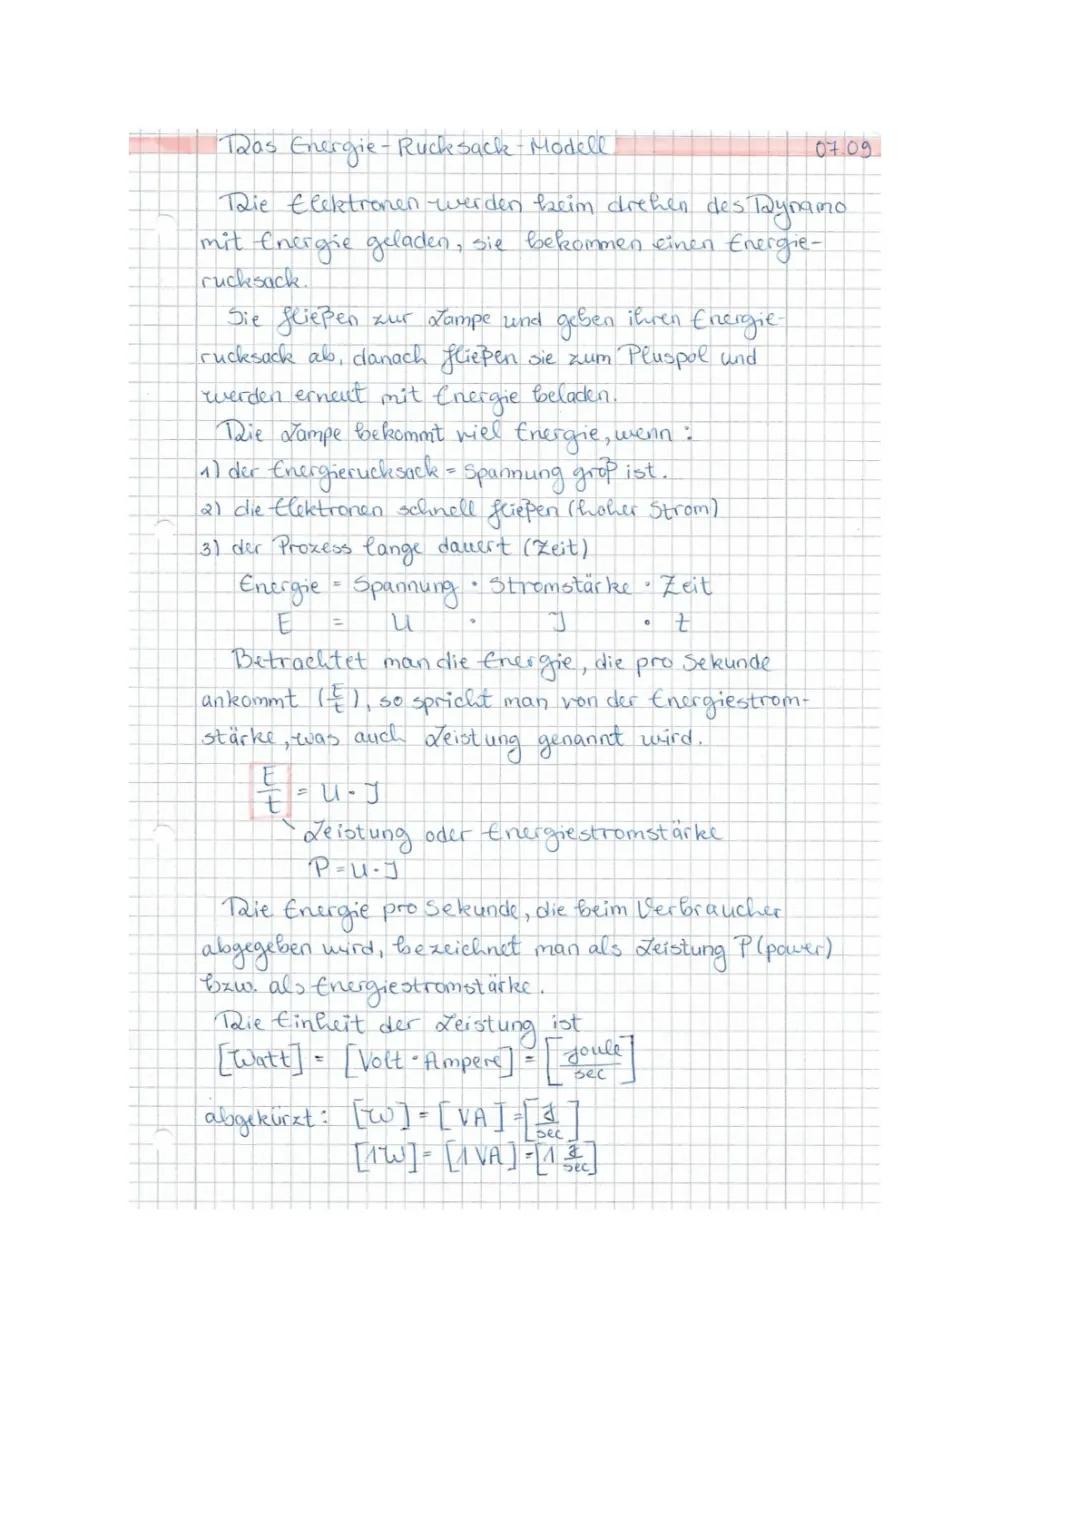 Das Energie-Rucksack-Modell 07.09
Die Elektronen werden beim drehen des Dynamo
mit Energie geladen, sie bekommen einen Energie-
rucksack.
Sie fließen zur Lampe und geben ihren Energie-
rucksack ab, danach fließen sie zum Pluspol und
werden erneut mit Energie beladen.
Die Lampe bekommt viel Energie, wenn:
1) der Energierucksack = Spannung groß ist.
2) die Elektronen schnell fließen (hoher Strom)
3) der Prozess lange dauert (Zeit)
Energie = Spannung · Stromstärke · Zeit
E = U · I · t
Betrachtet man die Energie, die pro Sekunde
ankommt (E/t), so spricht man von der Energiestrom-
stärke, was auch Leistung genannt wird.
E/t = U · I
Leistung oder Energiestromstärke
P = U · I
Die Energie pro Sekunde, die beim Verbraucher
abgegeben wird, bezeichnet man als Leistung P (power)
bzw. als Energiestromstärke.
Die Einheit der Leistung ist
[Watt] = [Volt · Ampere] = [Joule/sec]
abgekürzt: [W] = [VA] = [J/sec]
[1W] = [1VA] = [1 J/sec]